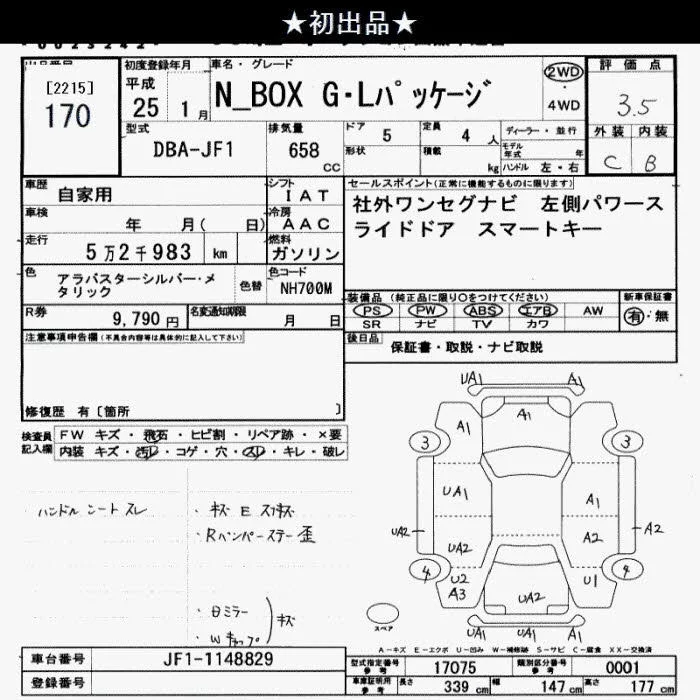 ★初出品★
出品番号
[2215]
170
初度登録年月
平成
25 1月
車名・グレード
N_BOX G・Lパッケージ
2WD
・
4WD
評価点
3.5
外装 内装
C B
型式
DBA-JF1
排気量
658
CC
ドア 5
形状
定員 4 人
積載 kg
ディーラー・並行
モデル年式 年
ハンドル 左・右
車歴
自家用
シフト
IAT
車検
年 月( 日)
冷房
AAC
走行
5万2千983 km
燃料
ガソリン
色
アラバスターシルバー・メ
タリック
色替
色コード
NH700M
R券
9,790 円
名変通知期限
月 日
セールスポイント(正常に機能するものに限ります)
社外ワンセグナビ 左側パワース
ライドドア スマートキー
装備品(純正品に限り○をつけてください)
PS PW ABS エアB AW
SR ナビ TV カワ
新車保証書
有・無
後日品
保証書・取説・ナビ取説
注意事項申告欄(不具合内容等は具体的に記入して下さい)
修復歴 有〔箇所 〕
検査員
記入欄
FW キズ・飛石・ヒビ割・リペア跡・×要
内装 キズ・汚レ・コゲ・穴・スレ・キレ・破レ
ハンドル シート スレ
・キズ E スリキズ
・Rバンパーステー歪
・日ミラー
・Wキャップ
キズ
UA1 A1
A1
A1
3 3
UA1 A1
UA2 A2 A2
UA2
4 4
U2 U1
A3
UA2
UA1 UA1
スペア
A-キズ E-エクボ U-凹み W-補修跡 S-サビ C-腐食 XX-交換済
車台番号
JF1-1148829
登録番号
型式指定番号
参考
17075
類別区分番号
参考
0001
車庫証明用
参考
長さ 339 cm
幅 147 cm
高さ 177 cm